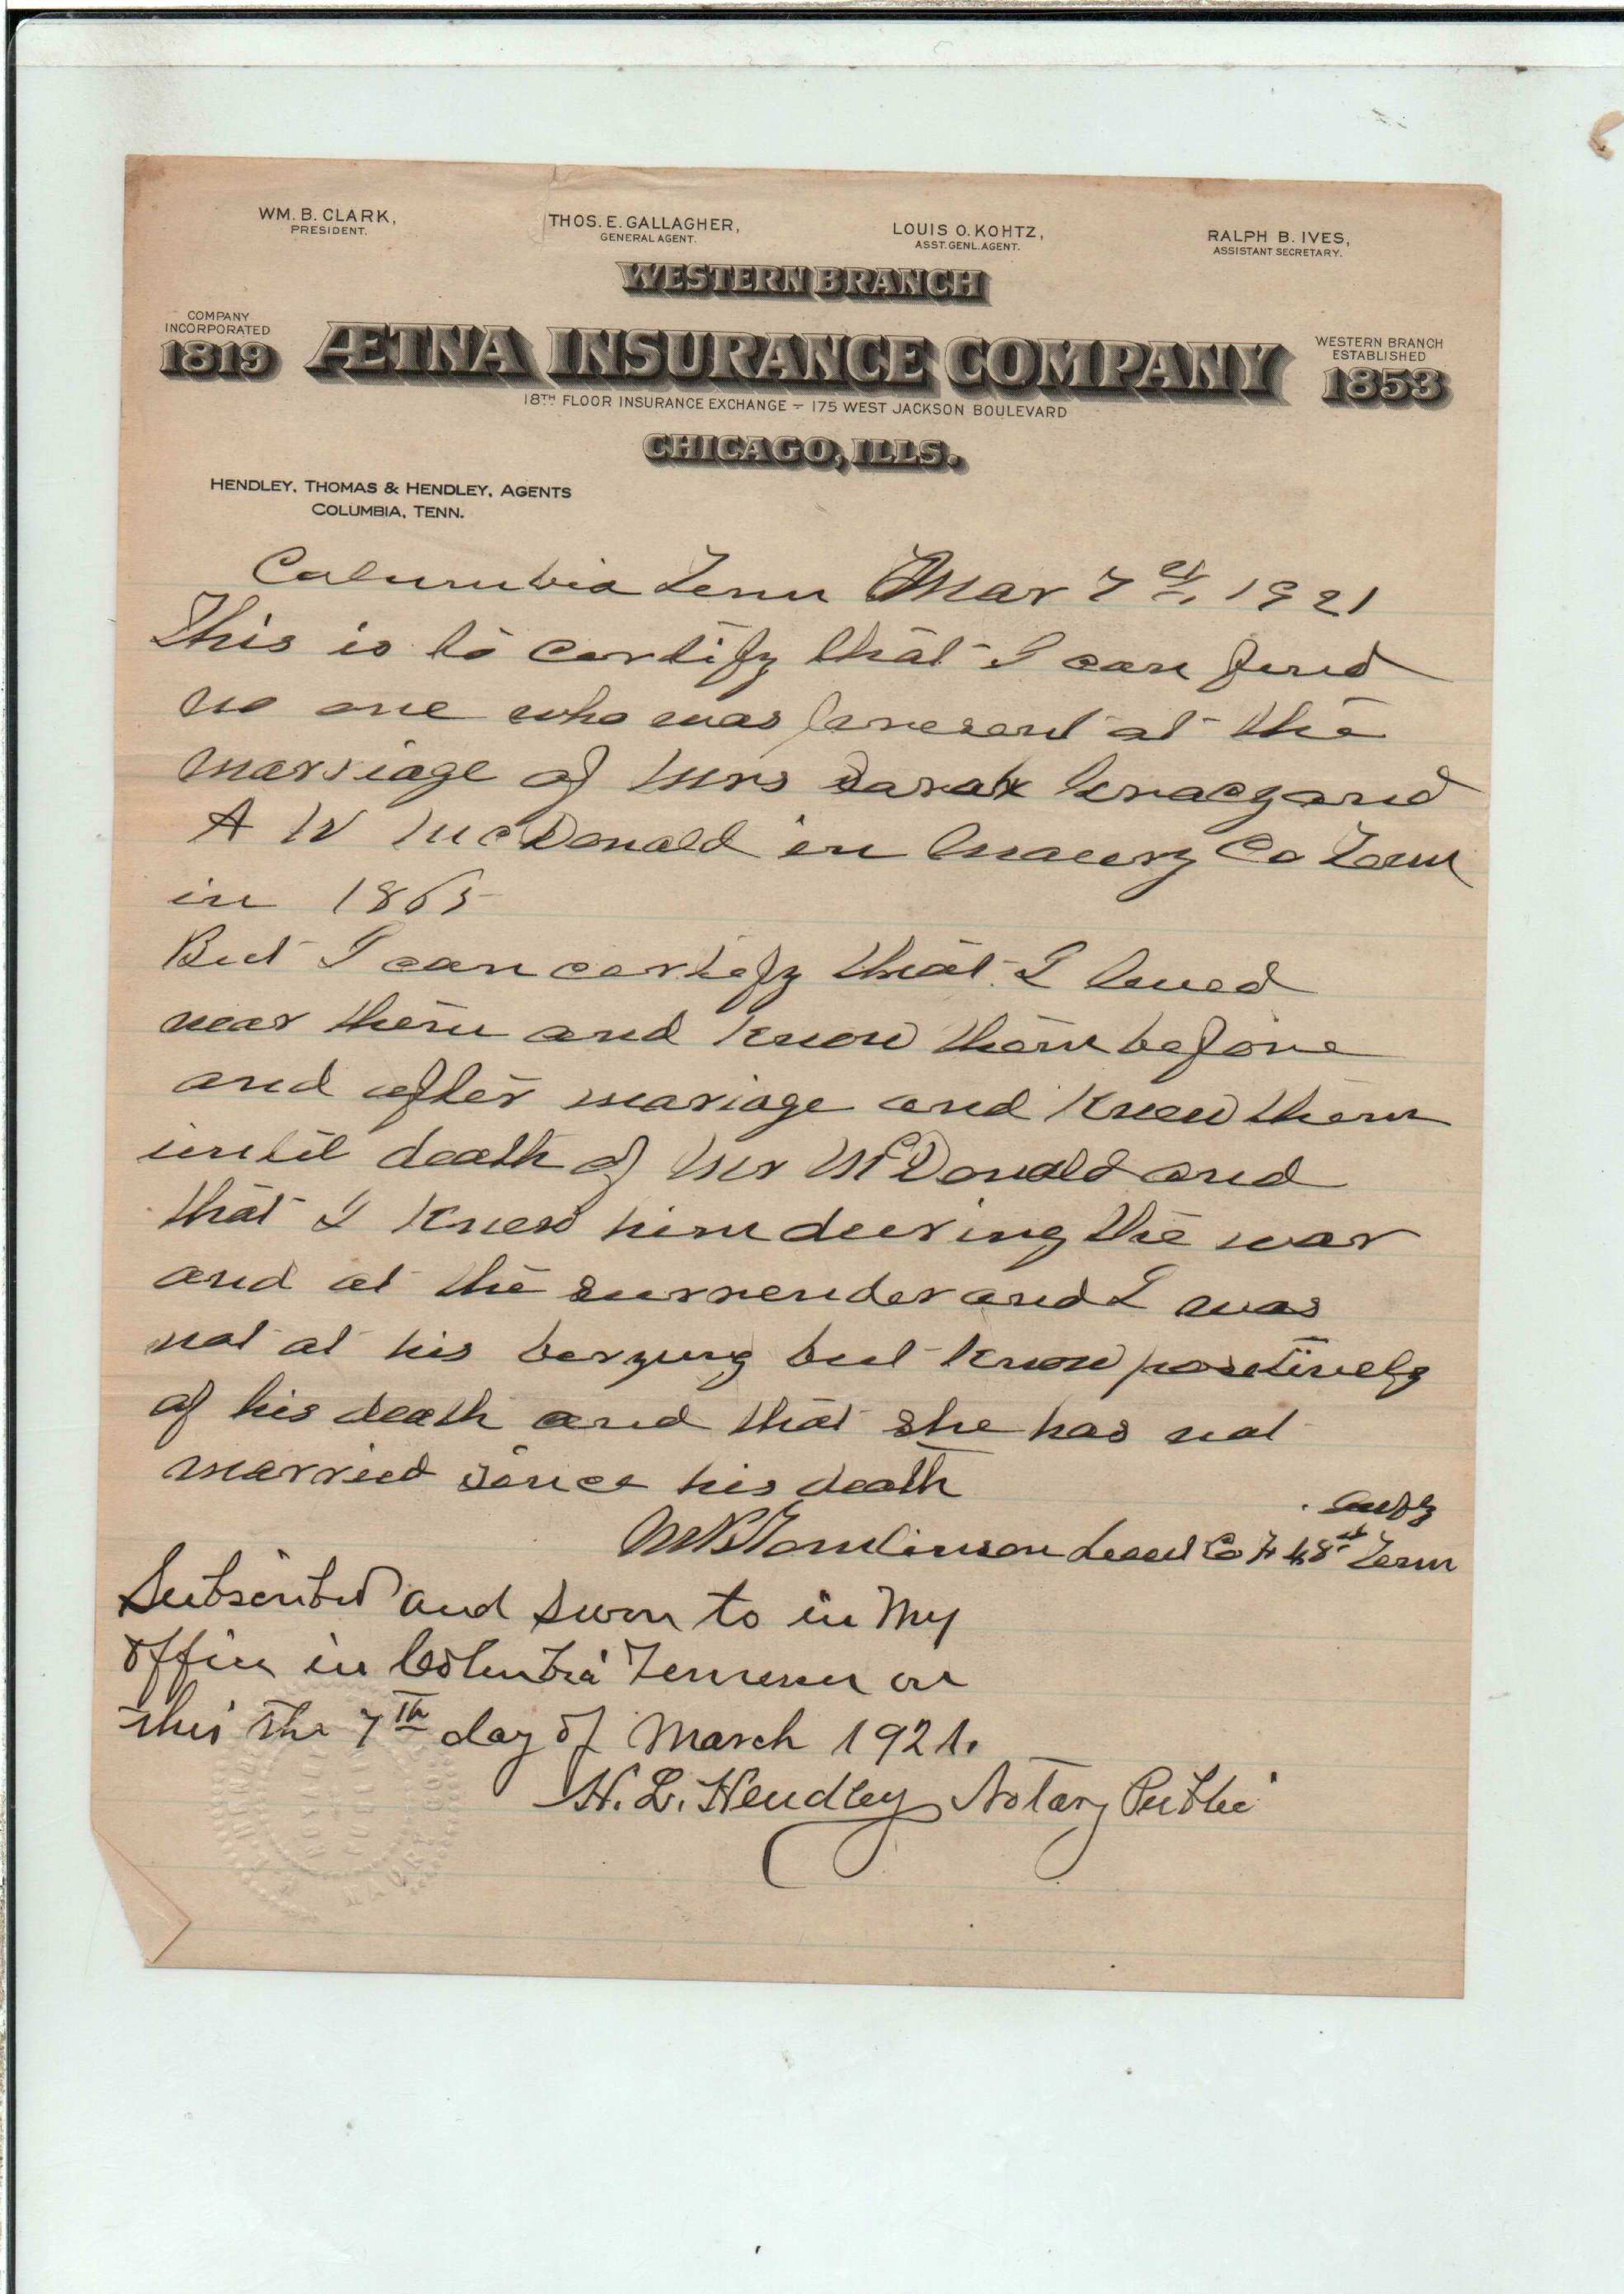 WM. B. CLARK, THOS. E. GALLAGHER, LOUIS O. KOHTZ, RALPH B. IVES,
PRESIDENT. GENERAL AGENT. ASST. GENL. AGENT. ASSISTANT SECRETARY.
WESTERN BRANCH
COMPANY INCORPORATED 1819
ÆTNA INSURANCE COMPANY
WESTERN BRANCH ESTABLISHED 1853
18TH FLOOR INSURANCE EXCHANGE – 175 WEST JACKSON BOULEVARD
CHICAGO, ILLS.
HENDLEY, THOMAS & HENDLEY, AGENTS
COLUMBIA, TENN.
Columbia Tenn Mar 7 1921
This is to certify that I can find
no one who was present at the
marriage of Mrs Sarah and
A W McDonald in Maury Co Tenn
in 1865
But I can certify that I lived
near them and know them before
and after mariage and Knew them
until death of Mr McDonald and
that I Knew him during the war
and at the surrender and I was
not at his but know positively
of his death and that she has not
married since his death
Tomlinson Co 48 Tenn
Subscribed and sworn to in my
office in Columbia Tennessee on
this the 7th day of March 1921.
H. L. Hendley Notary Public